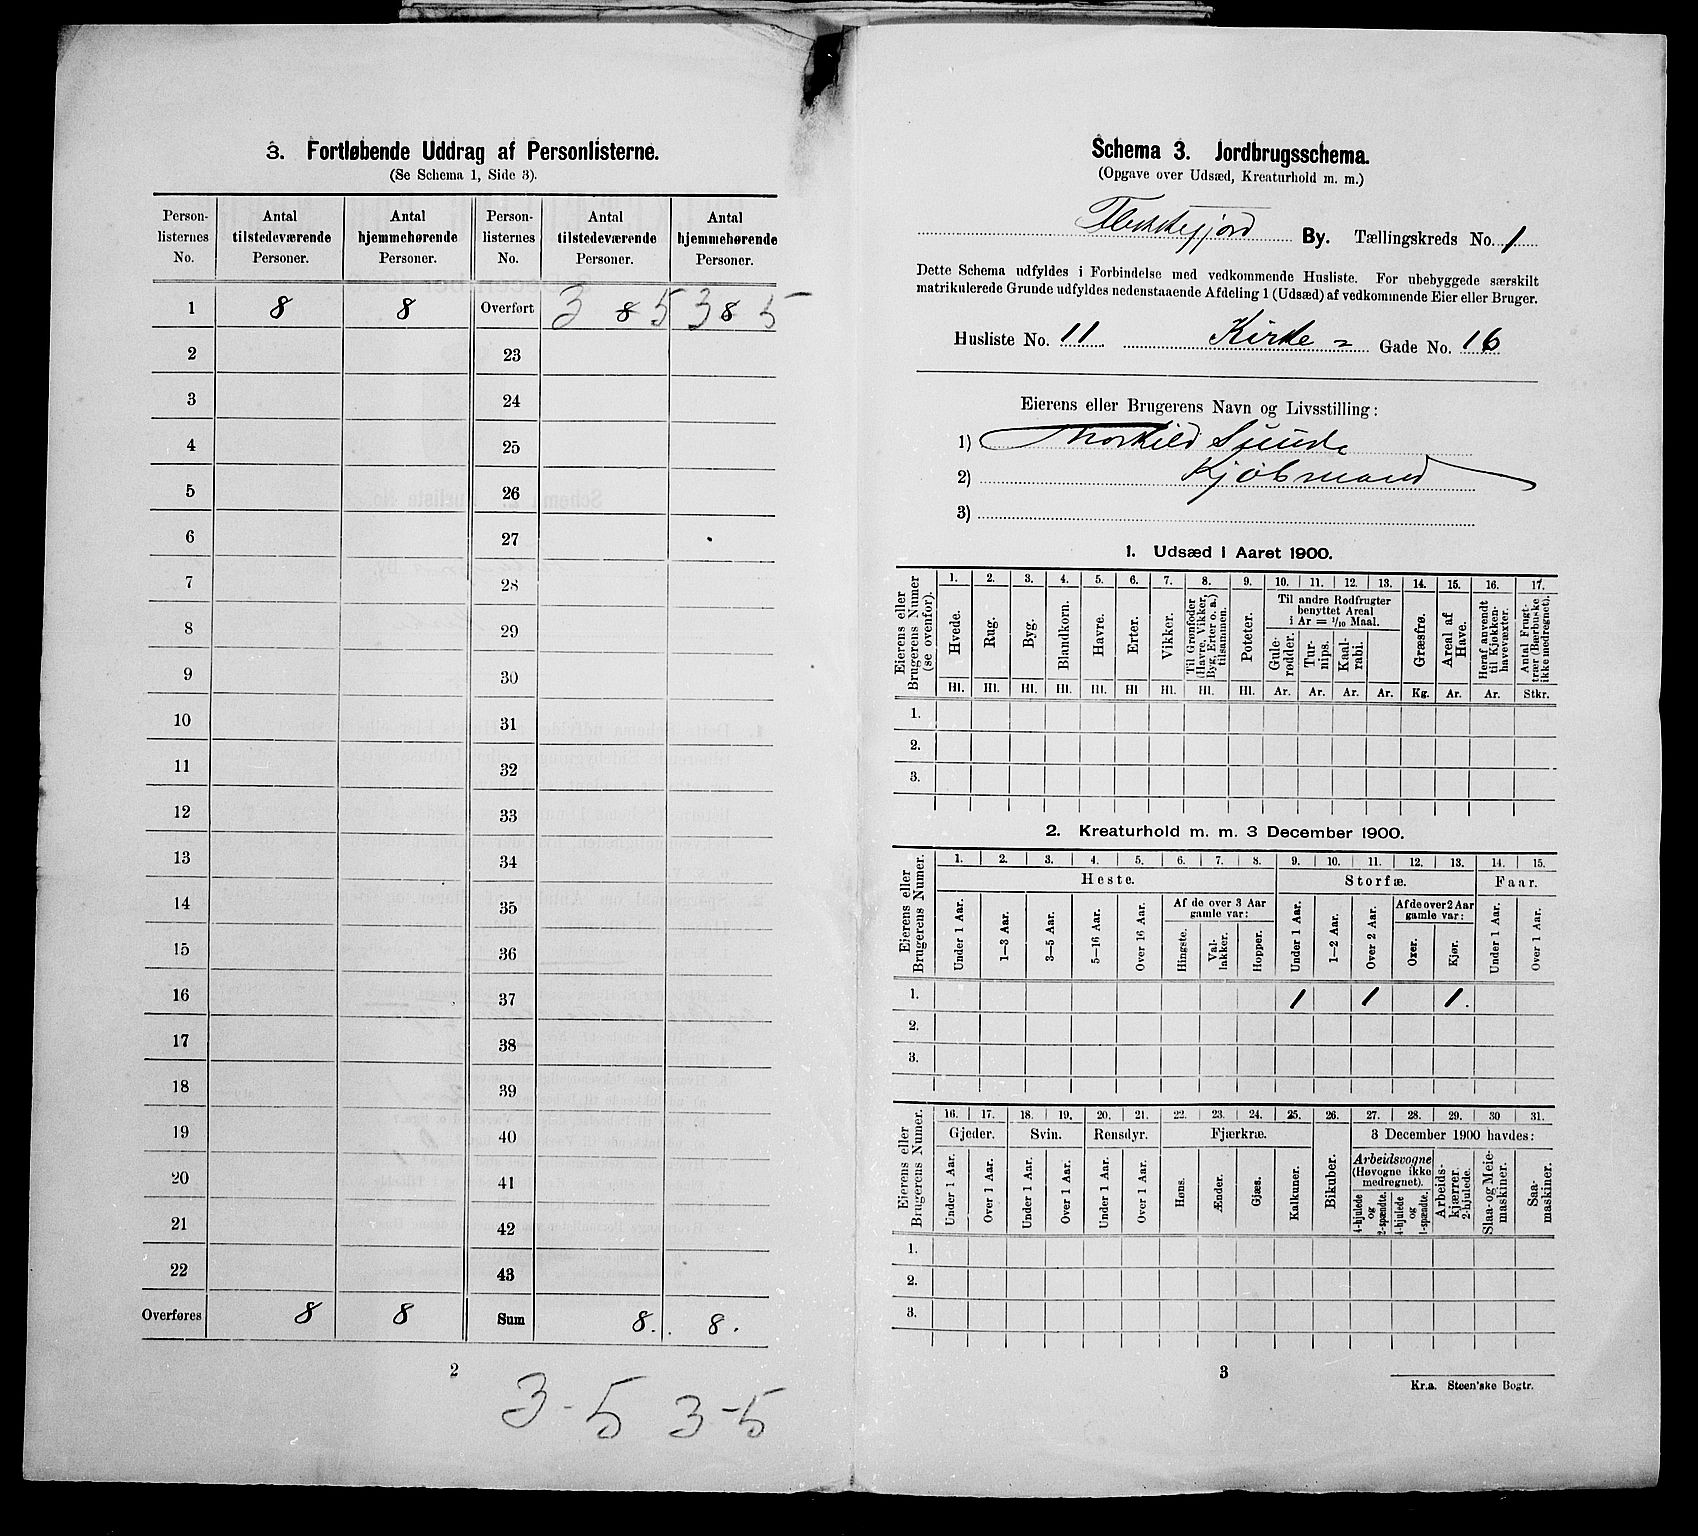 3. Fortløbende Uddrag af Personlisterne.
(Se Schema 1, Side 3).
Person-listernes No. | Antal tilstedeværende Personer. | Antal hjemmehørende Personer. | Person-listernes No. | Antal tilstedeværende Personer. | Antal hjemmehørende Personer.
1 | 8 | 8 | Overført | 3 8 5 | 3 8 5
2 | | | 23
3 | | | 24
4 | | | 25
5 | | | 26
6 | | | 27
7 | | | 28
8 | | | 29
9 | | | 30
10 | | | 31
11 | | | 32
12 | | | 33
13 | | | 34
14 | | | 35
15 | | | 36
16 | | | 37
17 | | | 38
18 | | | 39
19 | | | 40
20 | | | 41
21 | | | 42
22 | | | 43
Overføres | 8 | 8 | Sum | 8. | 8.
2
3-5 3-5
Schema 3. Jordbrugsschema.
(Opgave over Udsæd, Kreaturhold m. m.)
Flekkefjord By. Tællingskreds No. 1
Dette Schema udfyldes i Forbindelse med vedkommende Husliste. For ubebyggede særskilt
matrikulerede Grunde udfyldes nedenstaaende Afdeling 1 (Udsæd) af vedkommende Eier eller Bruger.
Husliste No. 11 Kirke- Gade No. 16
Eierens eller Brugerens Navn og Livsstilling:
1) Thorkild Sunde
2) Kjøbmand
3)
1. Udsæd i Aaret 1900.
Eierens eller Brugerens Numer (se ovenfor). | 1. | 2. | 3. | 4. | 5. | 6. | 7. | 8. | 9. | 10. | 11. | 12. | 13. | 14. | 15. | 16. | 17.
Hvede. | Rug. | Byg. | Blandkorn. | Havre. | Erter. | Vikker. | Til Grønfoder (Havre, Vikker, Byg, Erter o. a.) tilsammen. | Poteter. | Til andre Rodfrugter benyttet Areal i Ar = 1/10 Maal. | Gulerødder. | Turnips. | Kaalrabi. | Græsfrø. | Areal af Have. | Heraf anvendt til Kjøkkenhavevæxter. | Antal Frugttrær (Bærbuske ikke medregnet).
Hl. | Hl. | Hl. | Hl. | Hl. | Hl | Hl. | Hl. | Hl. | Ar. | Ar. | Ar. | Ar. | Kg. | Ar. | Ar. | Stkr.
1.
2.
3.
2. Kreaturhold m. m. 3 December 1900.
Eierens eller Brugerens Numer. | 1. | 2. | 3. | 4. | 5. | 6. | 7. | 8. | 9. | 10. | 11. | 12. | 13. | 14. | 15.
Heste. | Storfæ. | Faar.
Af de over 3 Aar gamle var: | Af de over 2 Aar gamle var:
Under 1 Aar. | 1—3 Aar. | 3—5 Aar. | 5—16 Aar. | Over 16 Aar. | Hingste. | Vallakker. | Hopper. | Under 1 Aar. | 1—2 Aar. | Over 2 Aar. | Oxer. | Kjør. | Under 1 Aar. | Over 1 Aar.
1. | 1 | 1 | 1.
2.
3.
Eierens eller Brugerens Numer. | 16. | 17. | 18. | 19. | 20. | 21. | 22. | 23. | 24. | 25. | 26. | 27. | 28. | 29. | 30 | 31.
Gjeder. | Svin. | Rensdyr. | Fjærkræ. | 3 December 1900 havdes:
Under 1 Aar. | Over 1 Aar. | Under 1 Aar. | Over 1 Aar. | Under 1 Aar. | Over 1 Aar. | Høns. | Ænder. | Gjæs. | Kalkuner. | Bikuber. | Arbeidsvogne (Høvogne ikke medregnet). | 4-hjulede og 2-spændte. | 4-hjulede og 1-spændte. | Arbeidskjærrer. 2-hjulede. | Slaa- og Meiemaskiner. | Saamaskiner.
1.
2.
3.
3
Kr.a. Steen'ske Bogtr.